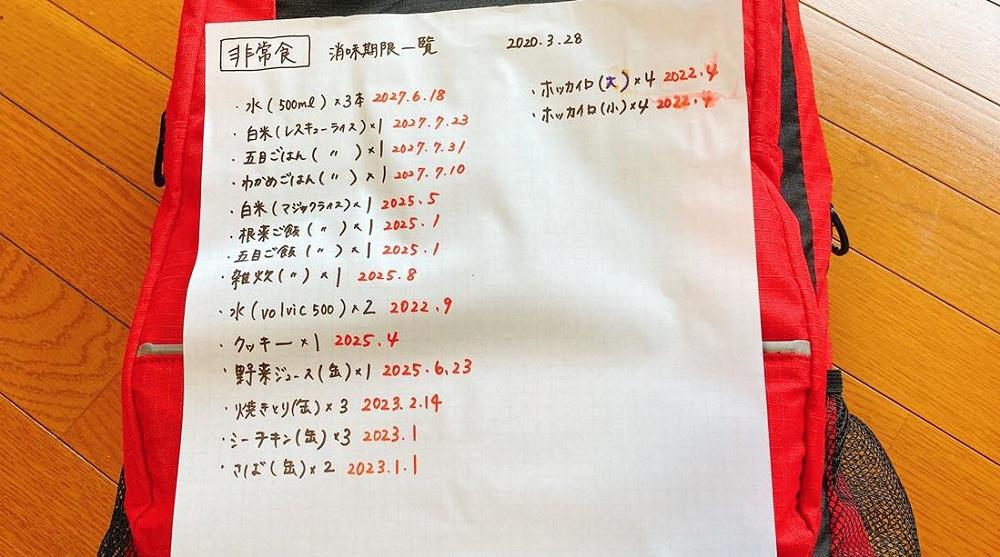 非常食 消味期限一覧 2020.3.28
・水(500ml)×3本 2027.6.18
・白米(レスキューライス)×1 2027.7.23
・五目ごはん(〃)×1 2027.7.31
・わかめごはん(〃)×1 2027.7.10
・白米(マジックライス)×1 2025.5
・根菜ご飯(〃)×1 2025.1
・五目ご飯(〃)×1 2025.1
・雑炊(〃)×1 2025.8
・水(volvic 500)×2 2022.9
・クッキー×1 2025.4
・野菜ジュース(缶)×1 2025.6.23
・焼きとり(缶)×3 2023.2.14
・シーチキン(缶)×3 2023.1
・さば(缶)×2 2023.1.1
・ホッカイロ(大)×4 2022.4
・ホッカイロ(小)×4 2022.4